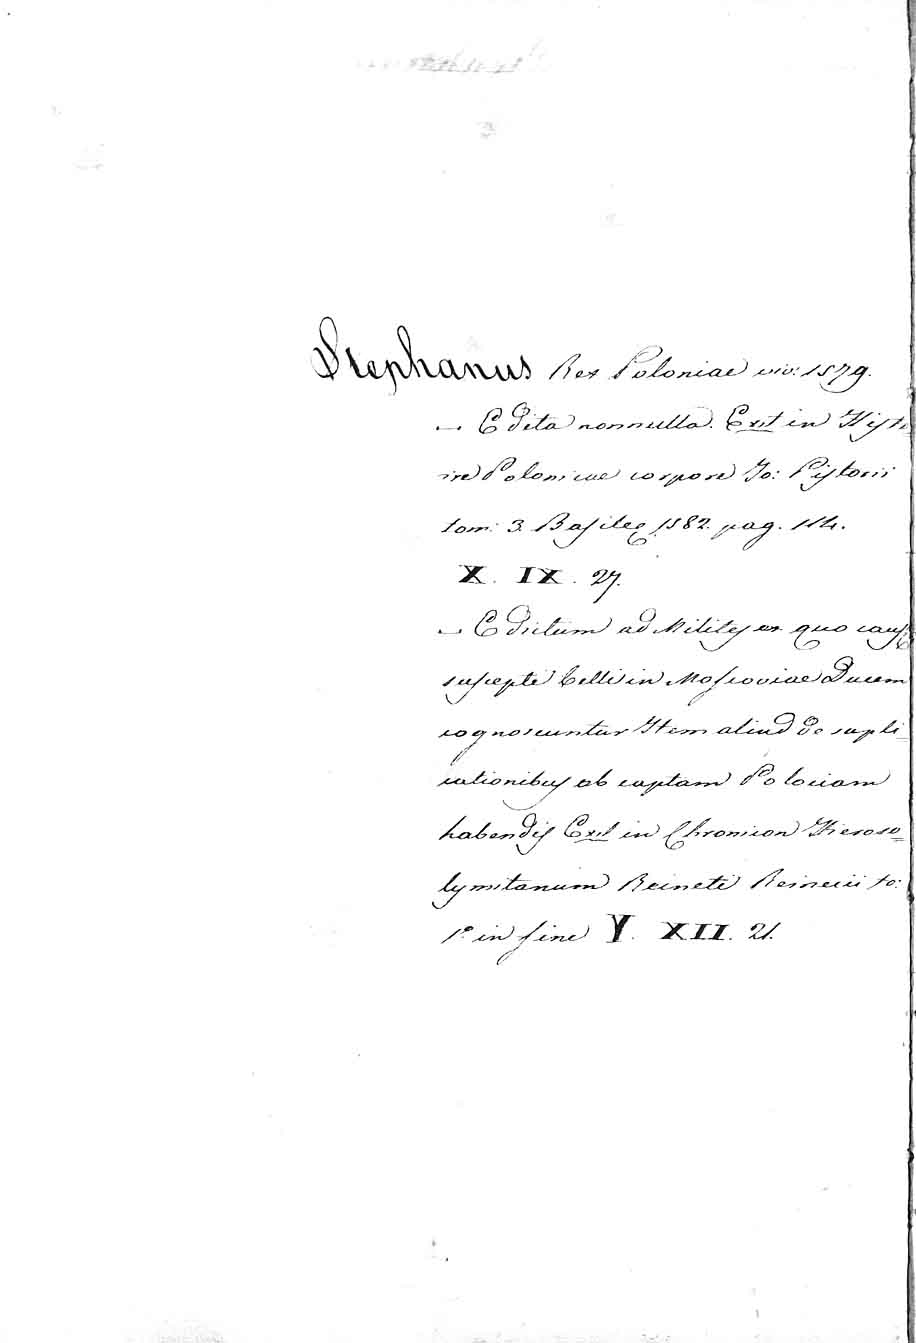 Stephanus Rex Poloniae viv: 1579.
— Edita nonnulla. Exit in Histo
riae Polonicae corpore Jo: Pistorii
tom: 3. Basileę 1582. pag. 114.
X. IX. 27.
— Edictum ad Milites ex quo causę
susceptę belli in Moscoviae Ducem
cognoscuntur Item aliud de supli-
cationibus ob captam Polociam
habendis Exit in Chronicon Hieroso=
lymitanum Reineri Reinecii to:
1º in fine Y. XII. 21.